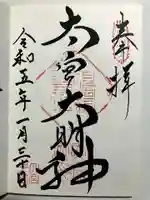 奉拝
太宮大明神
令和五年一月三十日